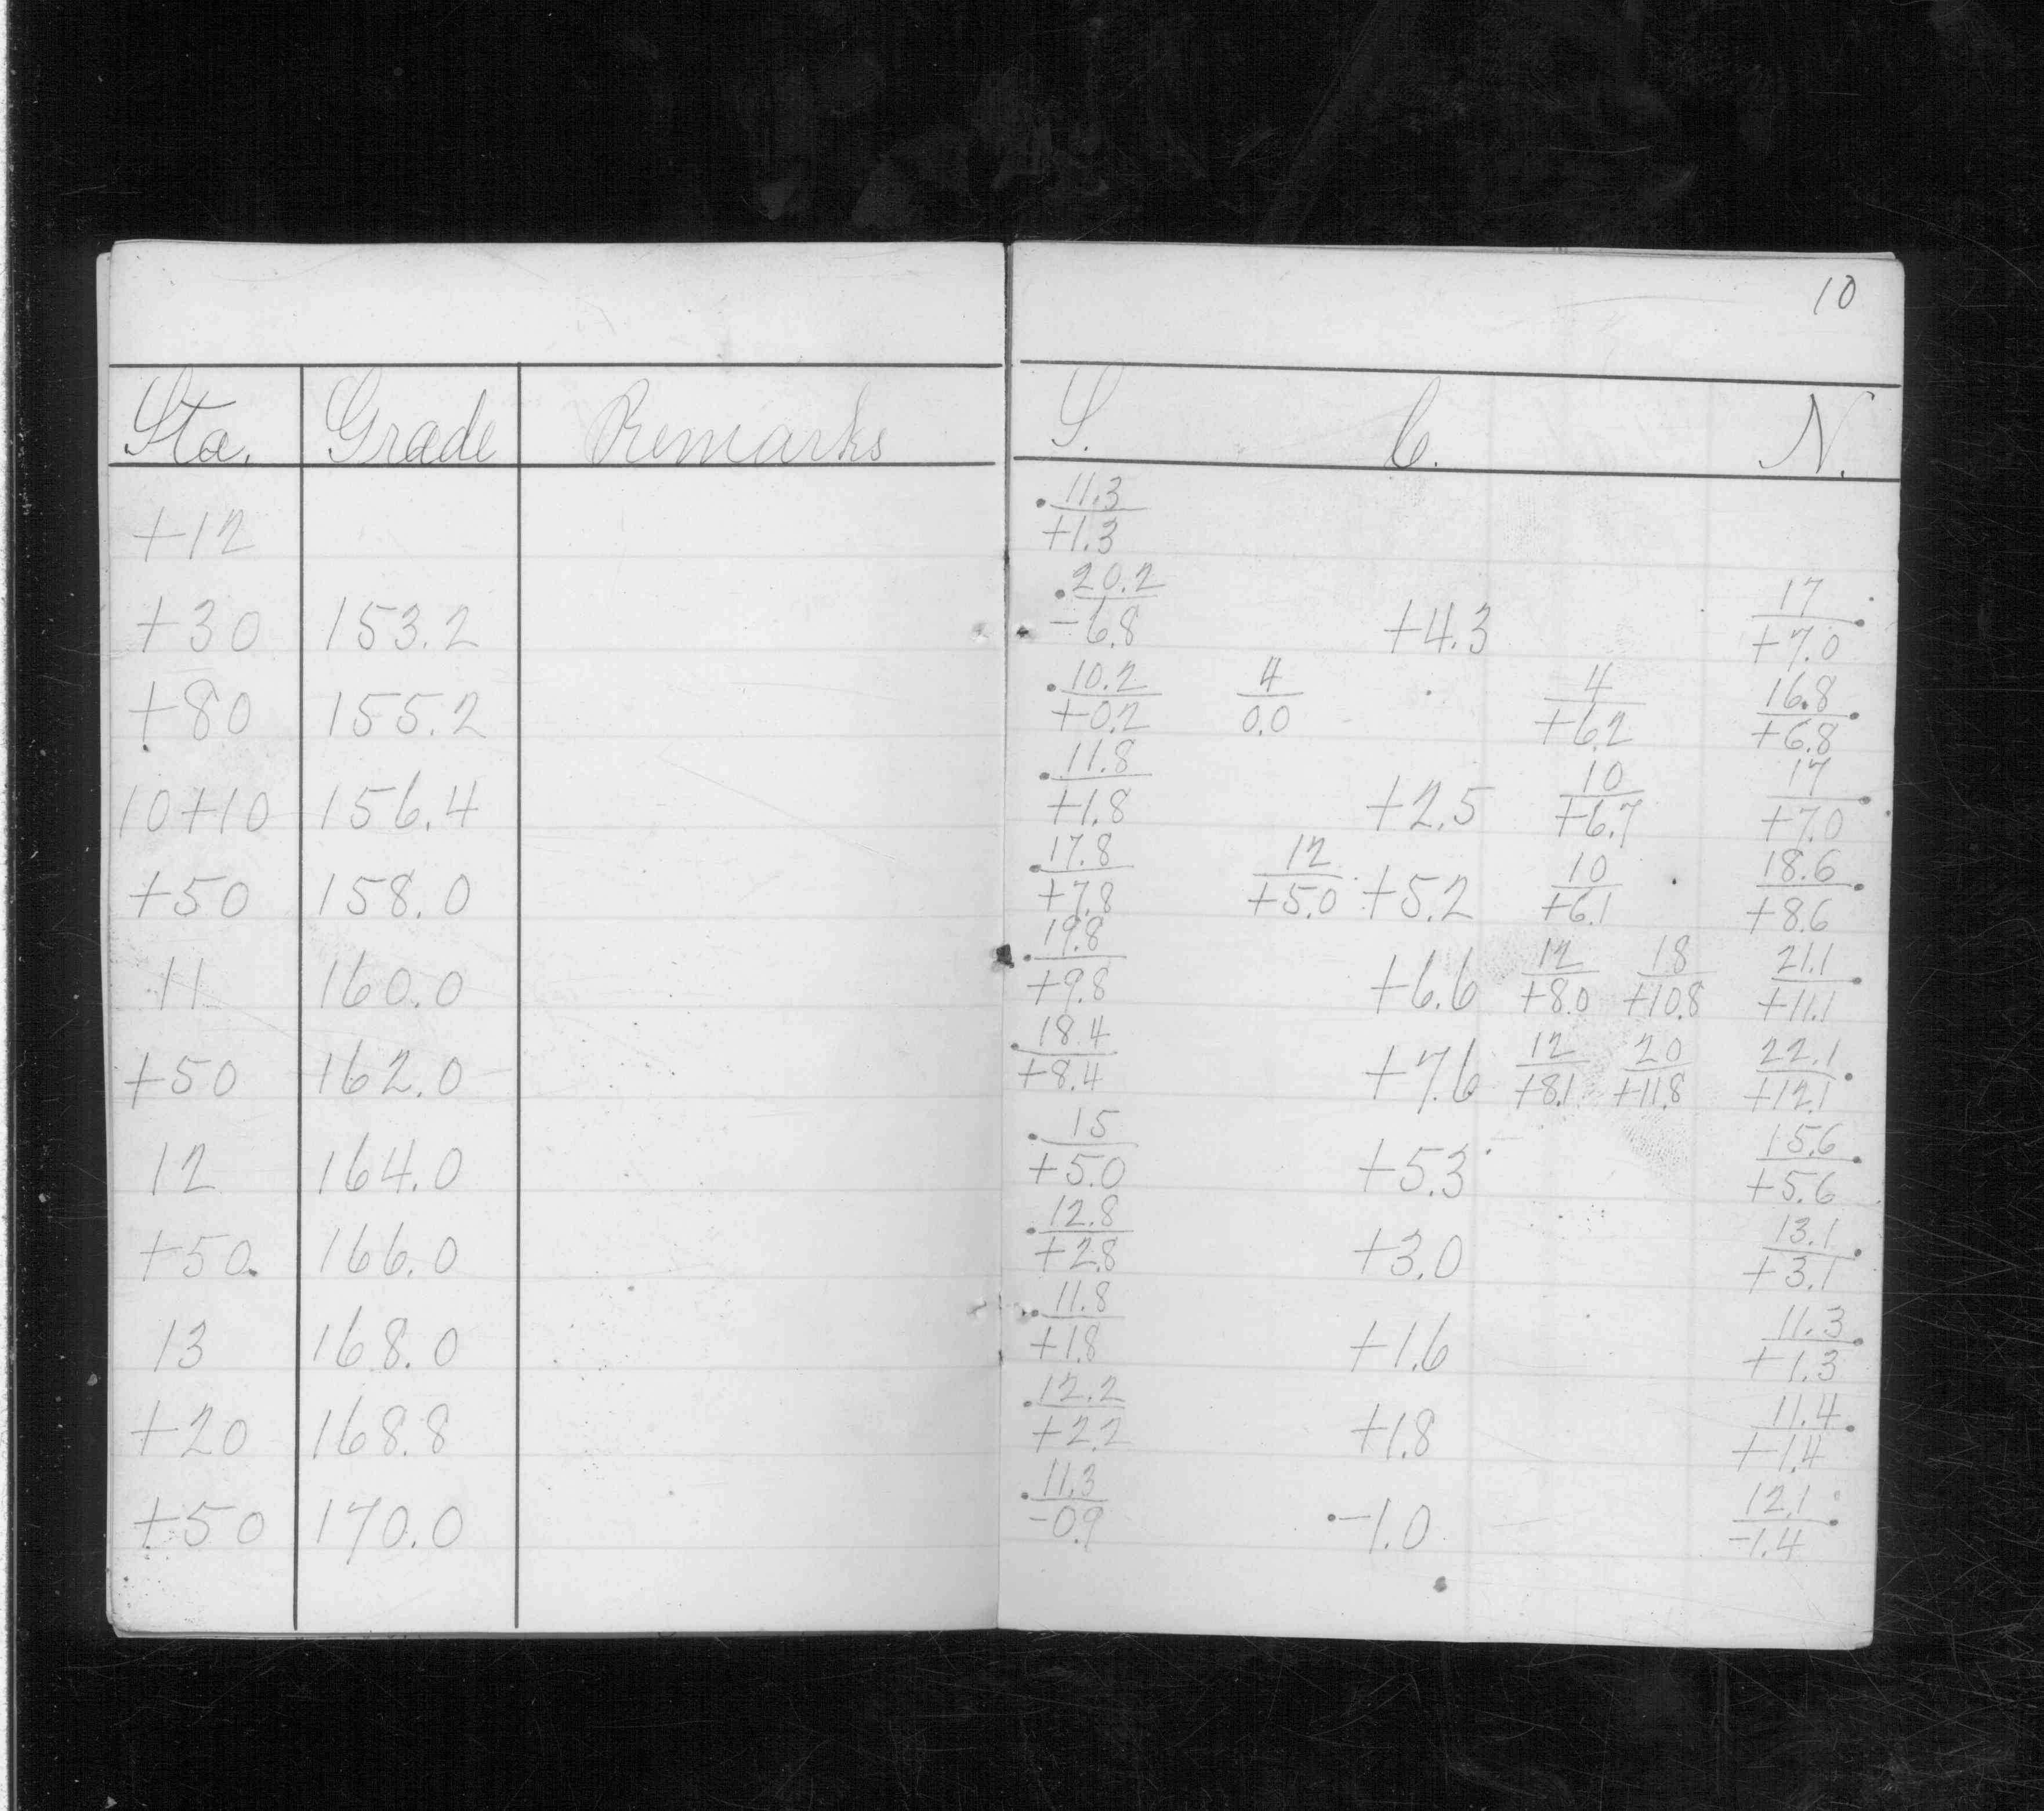 10
Sta. Grade Remarks S. C. N.
+12 11.3/+1.3
+30 153.2 20.2/-6.8 +4.3 17/+7.0
+80 155.2 10.2/+0.2 4/0.0 4/+6.2 16.8/+6.8
10+10 156.4 11.8/+1.8 +2.5 10/+6.7 17/+7.0
+50 158.0 17.8/+7.8 12/+5.0 +5.2 10/+6.1 18.6/+8.6
11 160.0 19.8/+9.8 +6.6 12/+8.0 18/+10.8 21.1/+11.1
+50 162.0 18.4/+8.4 +7.6 12/+8.1 20/+11.8 22.1/+12.1
12 164.0 15/+5.0 +5.3 15.6/+5.6
+50 166.0 12.8/+2.8 +3.0 13.1/+3.1
13 168.0 11.8/+1.8 +1.6 11.3/+1.3
+20 168.8 12.2/+2.2 +1.8 11.4/+1.4
+50 170.0 11.3/-0.9 -1.0 12.1/-1.4